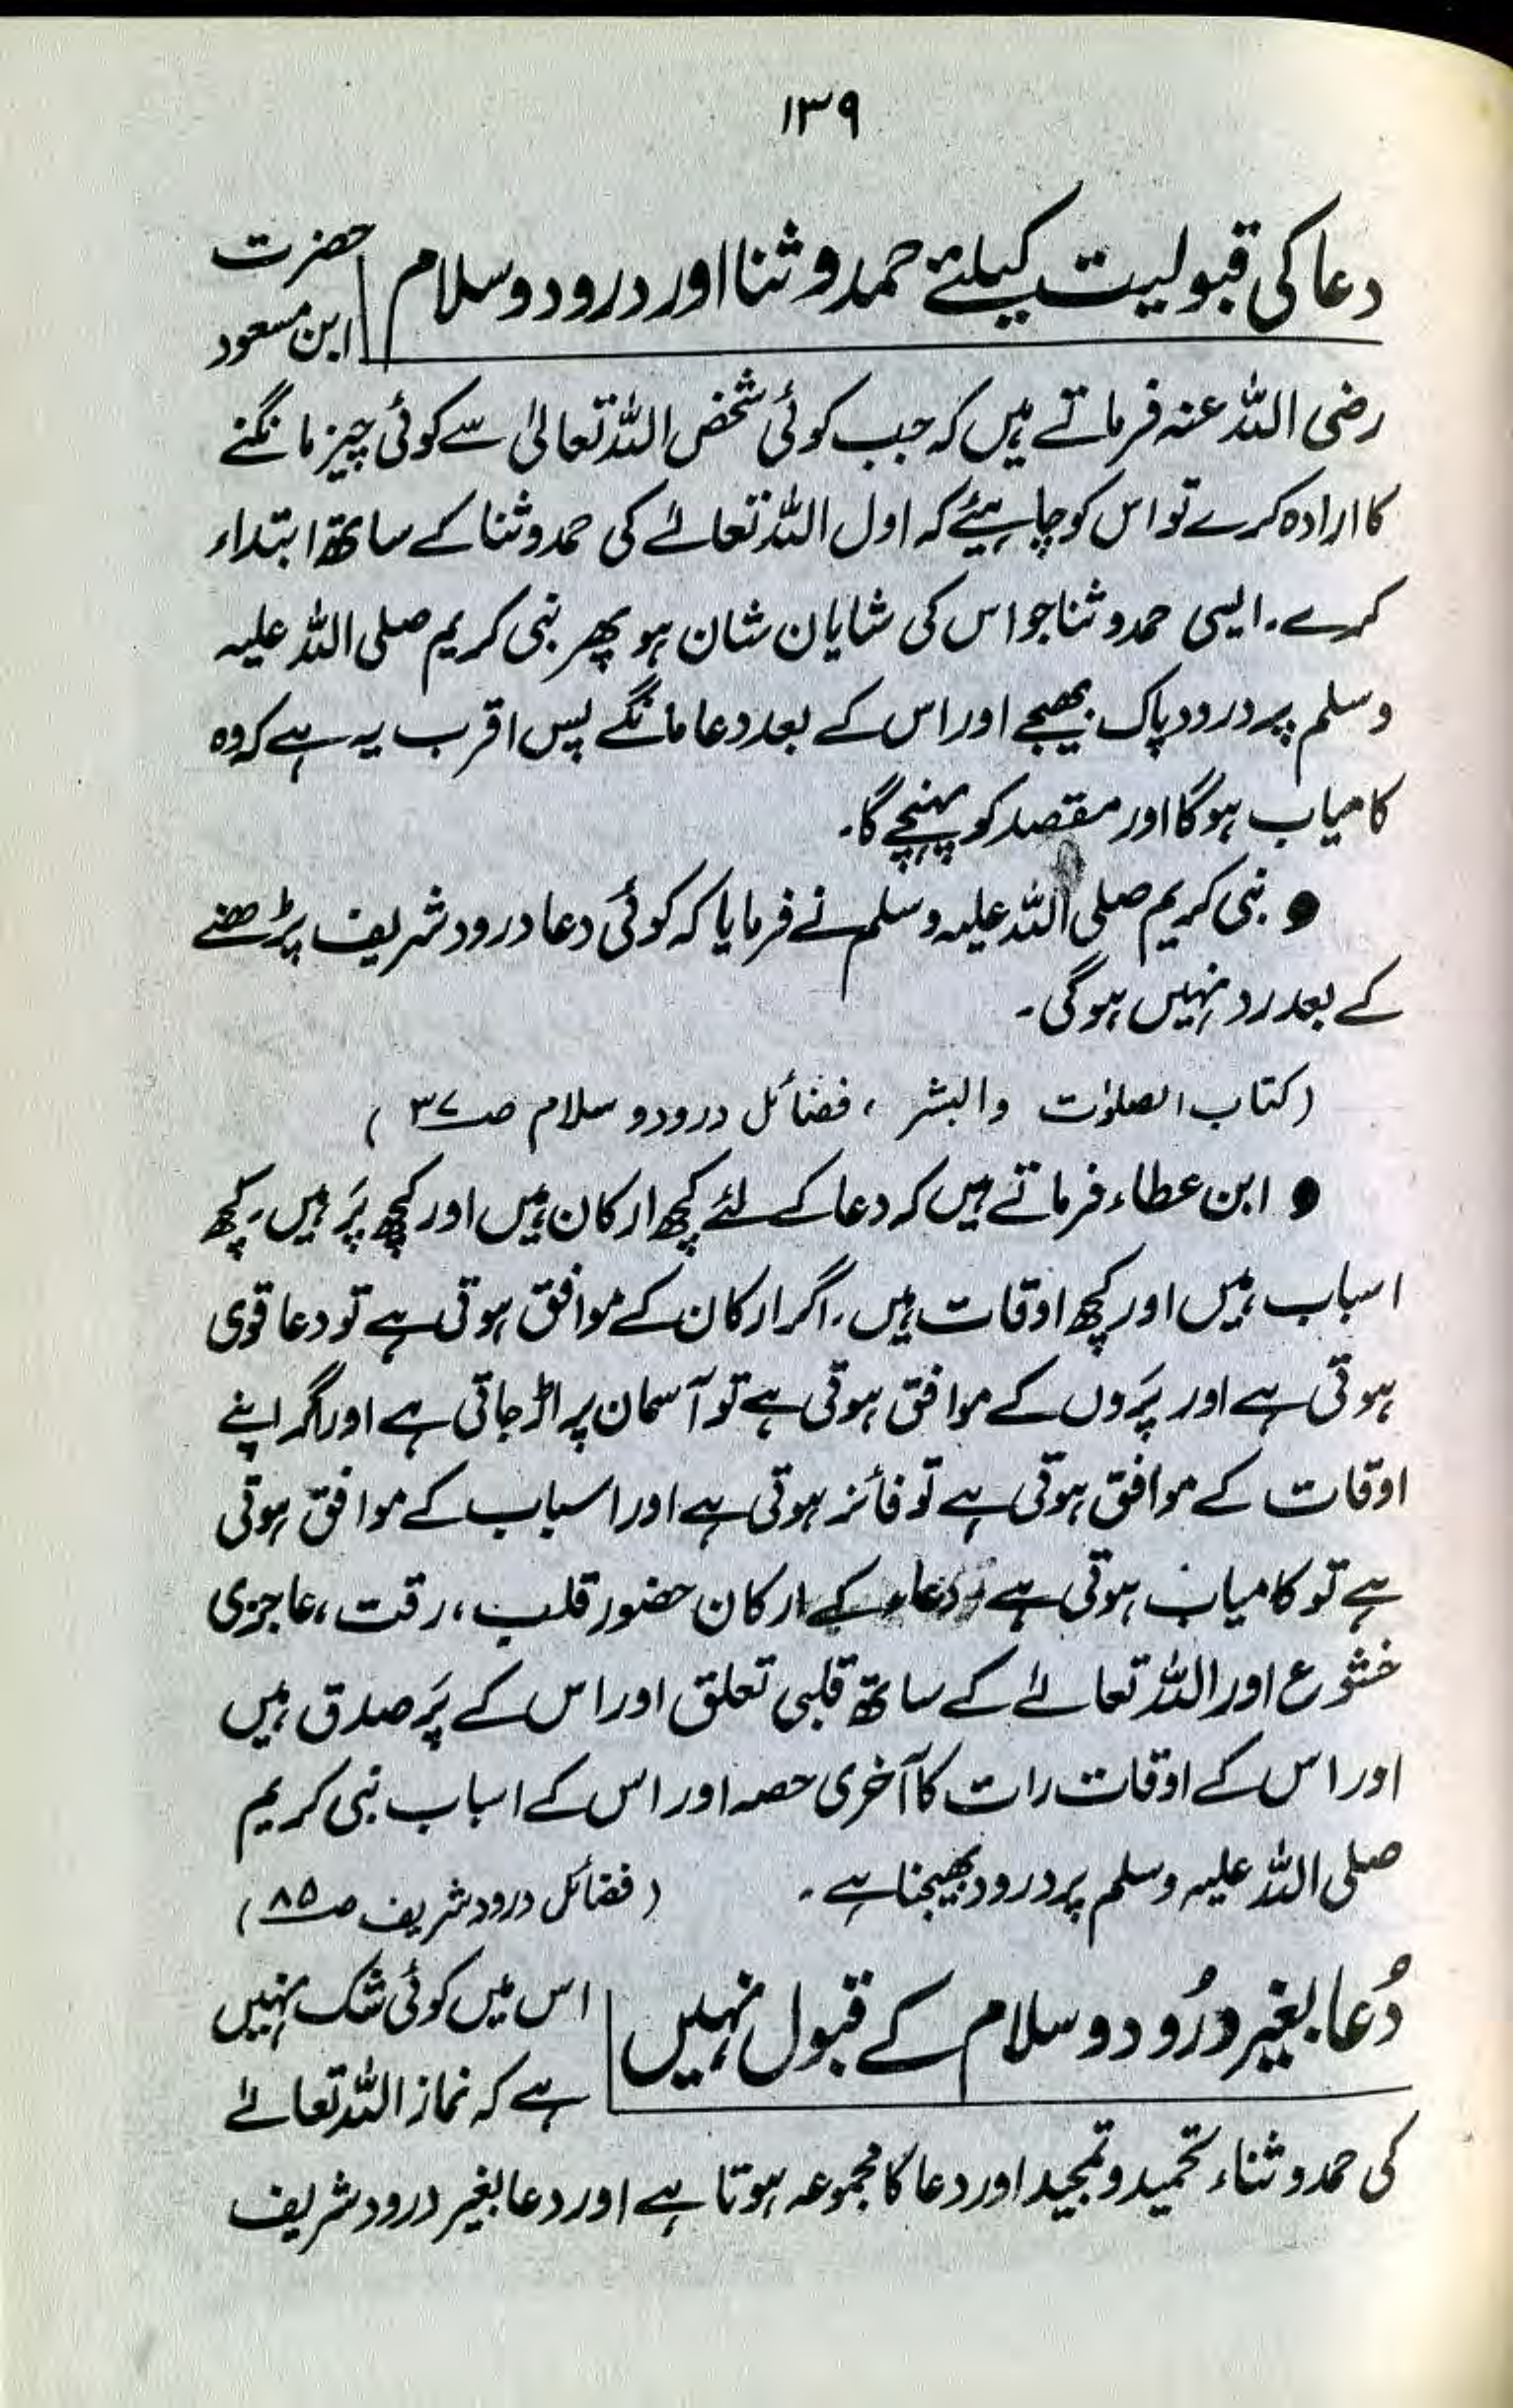 ۱۳۹
دعا کی قبولیت کیلئے حمد و ثنا اور درود و سلام
حضرت
ابن مسعود
رضی اللہ عنہ فرماتے ہیں کہ جب کوئی شخص اللہ تعالیٰ سے کوئی چیز مانگنے
کا ارادہ کرے تو اس کو چاہیئے کہ اول اللہ تعالےٰ کی حمد و ثنا کے ساتھ ابتداء
کرے۔ ایسی حمد و ثنا جو اس کی شایان شان ہو پھر نبی کریم صلی اللہ علیہ
وسلم پر درود پاک بھیجے اور اس کے بعد دعا مانگے پس اقرب یہ ہے کہ وہ
کامیاب ہوگا اور مقصد کو پہنچے گا۔
● نبی کریم صلی اللہ علیہ وسلم نے فرمایا کہ کوئی دعا درود شریف پڑھنے
کے بعد رد نہیں ہوگی۔
(کتاب الصلوٰت والبشر ، فضائل درود و سلام صـ۳۷)
● ابن عطاء فرماتے ہیں کہ دعا کے لئے کچھ ارکان ہیں اور کچھ پَر ہیں، کچھ
اسباب ہیں اور کچھ اوقات ہیں، اگر ارکان کے موافق ہوتی ہے تو دعا قوی
ہوتی ہے اور پَروں کے موافق ہوتی ہے تو آسمان پر اڑ جاتی ہے اور اگر اپنے
اوقات کے موافق ہوتی ہے تو فائز ہوتی ہے اور اسباب کے موافق ہوتی
ہے تو کامیاب ہوتی ہے دعاء کے ارکان حضور قلب، رقت، عاجزی
خشوع اور اللہ تعالےٰ کے ساتھ قلبی تعلق اور اس کے پَر صدق ہیں
اور اس کے اوقات رات کا آخری حصہ اور اس کے اسباب نبی کریم
صلی اللہ علیہ وسلم پر درود بھیجنا ہے۔ (فضائل درود شریف صـ۸۵)
دُعا بغیر درُود و سلام کے قبول نہیں
اس میں کوئی شک نہیں
ہے کہ نماز اللہ تعالےٰ
کی حمد و ثناء تحمید و تمجید اور دعا کا مجموعہ ہوتا ہے اور دعا بغیر درود شریف